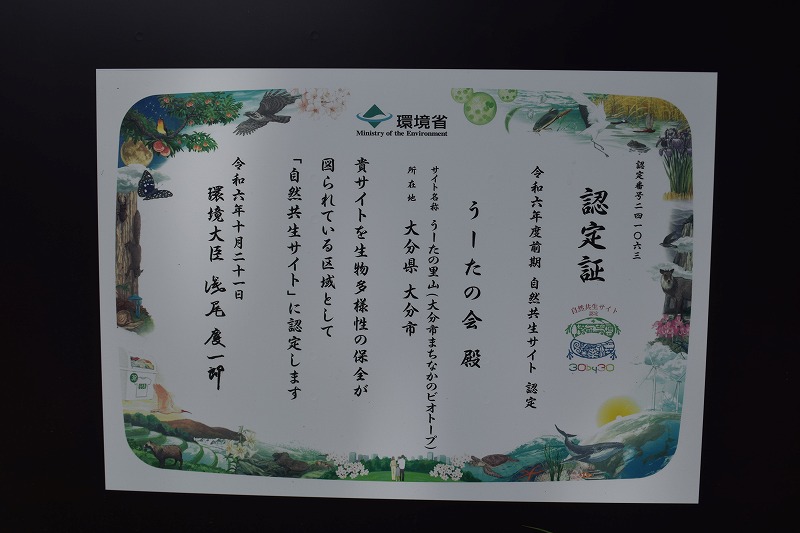 環境省
Ministry of the Environment
認定番号二四一〇六三
認定証
自然共生サイト
認定
30by30
令和六年度前期 自然共生サイト 認定
うーたの会 殿
サイト名称 うーたの里山(大分市まちなかのビオトープ)
所在地 大分県 大分市
貴サイトを生物多様性の保全が
図られている区域として
「自然共生サイト」に認定します
令和六年十月二十一日
環境大臣 浅尾 慶一郎